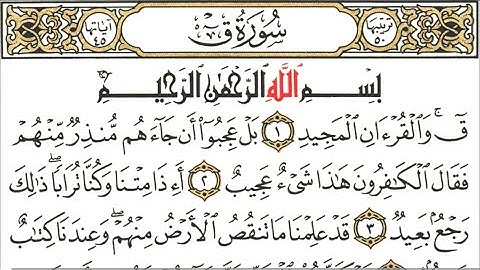 ترتيبها ٥٠ سُورَةُ ق آياتها ٤٥
بِسْمِ اللَّهِ الرَّحْمَٰنِ الرَّحِيمِ
قٓ ۚ وَٱلْقُرْءَانِ ٱلْمَجِيدِ ١ بَلْ عَجِبُوٓا۟ أَن جَآءَهُم مُّنذِرٌ مِّنْهُمْ
فَقَالَ ٱلْكَٰفِرُونَ هَٰذَا شَىْءٌ عَجِيبٌ ٢ أَءِذَا مِتْنَا وَكُنَّا تُرَابًا ۖ ذَٰلِكَ
رَجْعٌۢ بَعِيدٌ ٣ قَدْ عَلِمْنَا مَا تَنقُصُ ٱلْأَرْضُ مِنْهُمْ ۖ وَعِندَنَا كِتَٰبٌ